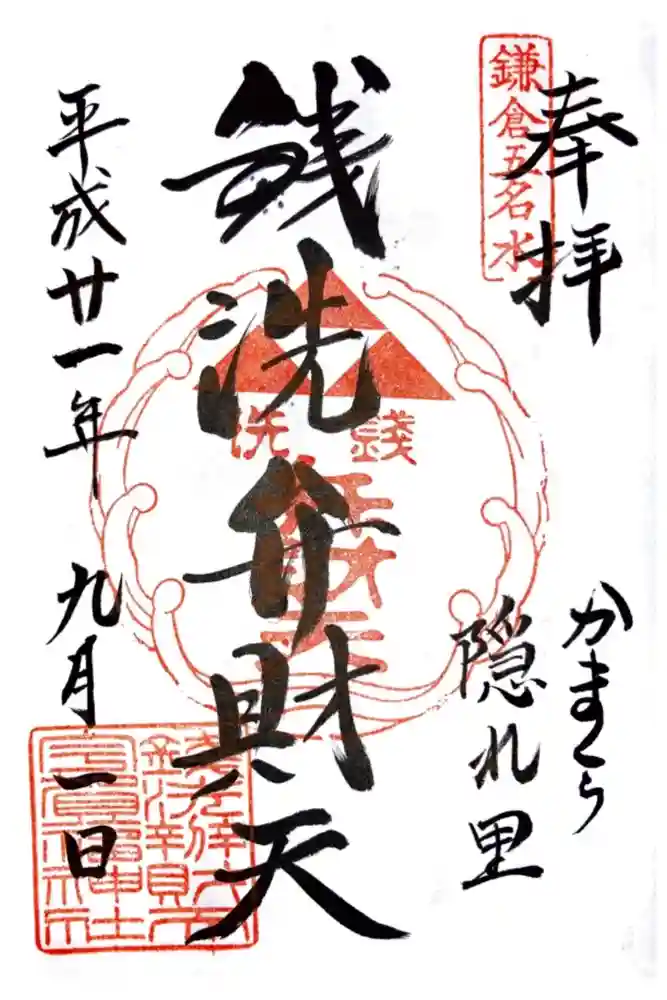 奉拝
鎌倉五名水
かまくら
隠れ里
銭洗弁財天
銭洗
弁財天
平成廿一年
九月一日
銭洗辨財天
宇賀福神社